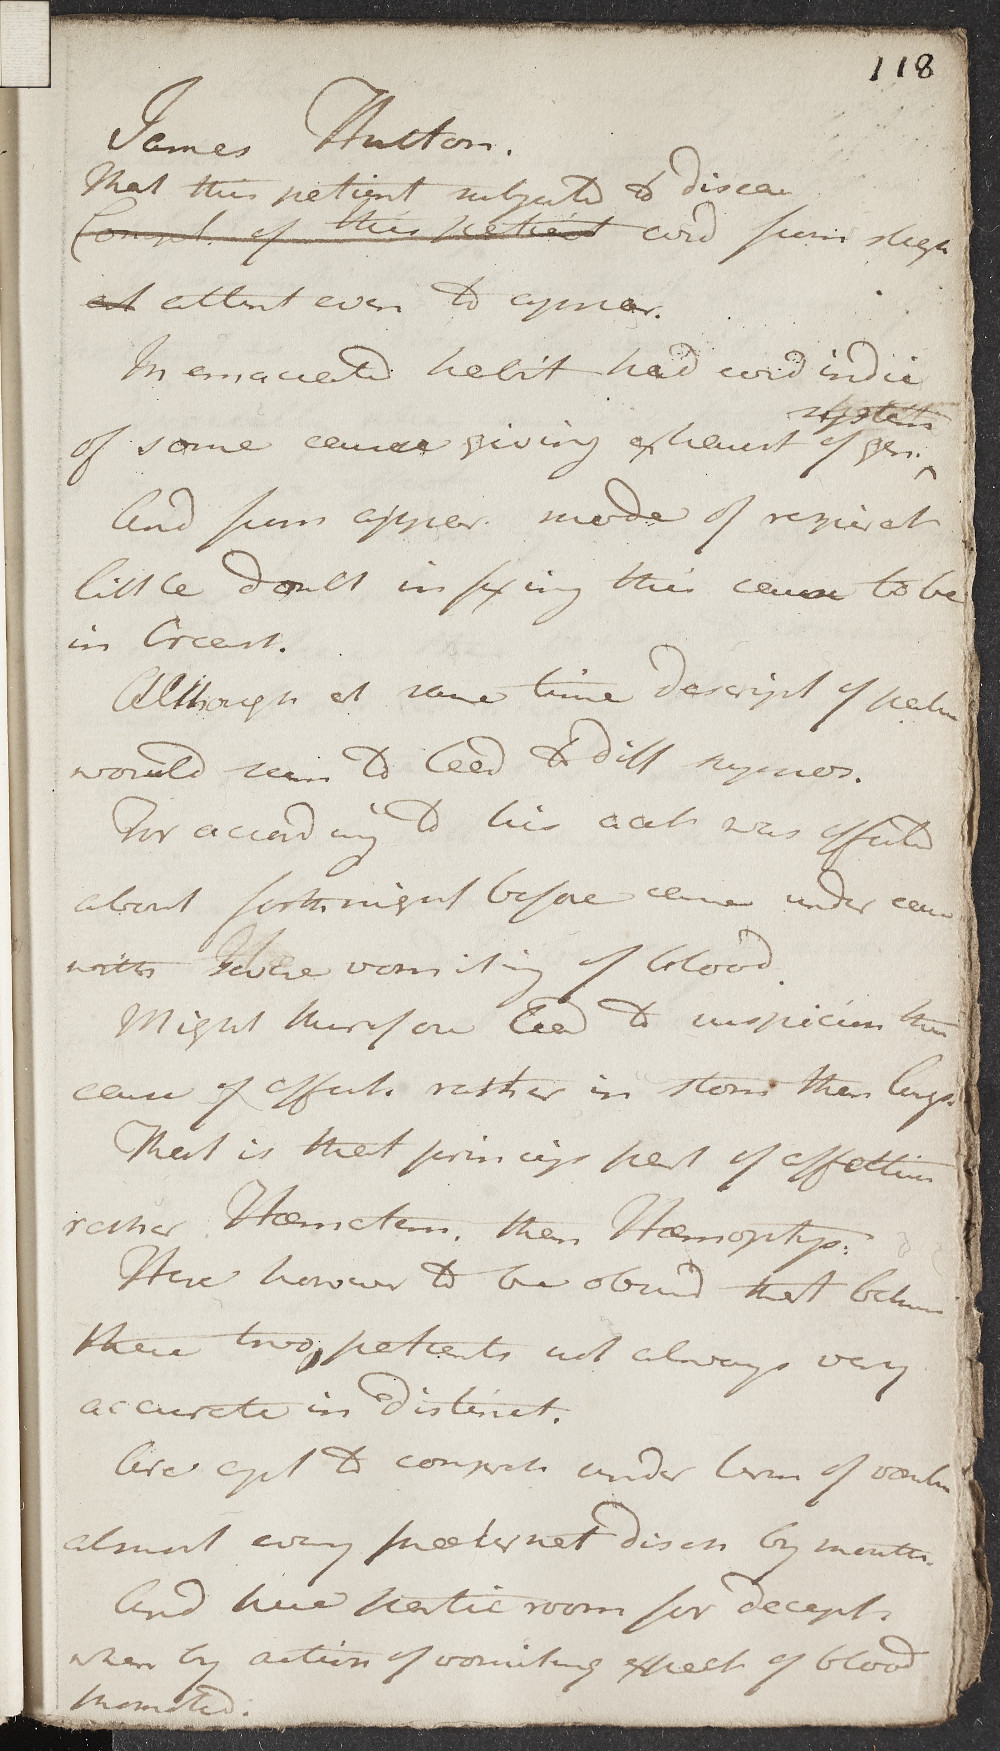 118
James Hutton.
That this patient subjected to disea
Compl. of this patient covd from sligh
at attent even to appear.
Inemaciated habit had covd indic
system
of some cause giving exhaust of gen.
And from appear. mode of respirat
little doubt in fixing this cause to be
in breast.
Although at same time descript of patn
would seem to lead to diff suppos.
For according to his acct was affected
about forthnight before came under care
with severe vomiting of blood.
Might therefore lead to suspicion that
cause of affect. rather in stom than lungs
That is that princip part of affection
rather Hæmatem. than Hæmoptys.
Here however to be observd that betwn
these two, patients not always very
accurate in distinct.
Are apt to compreh under term of vomtn
almost every preternat disch by mouth.
And here partic room for decept.
when by action of vomiting expect of blood
promoted.